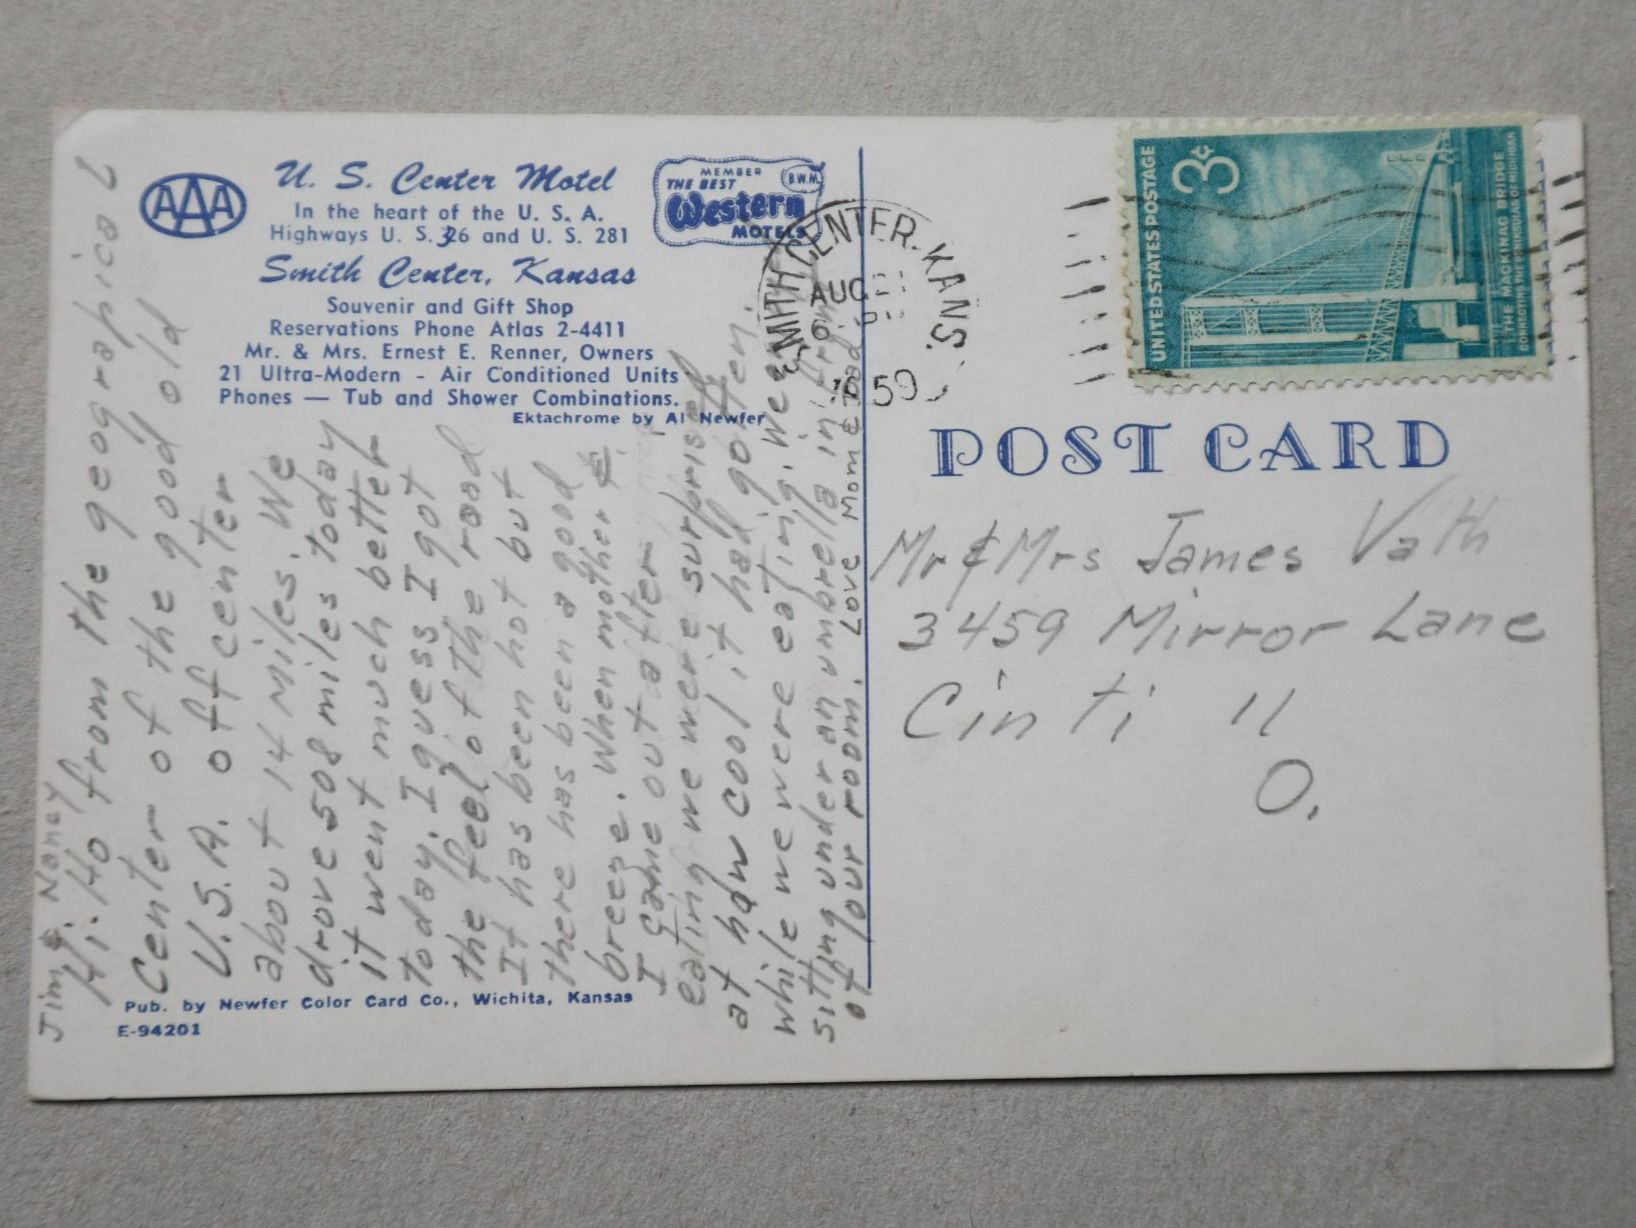 AAA
U. S. Center Motel
In the heart of the U. S. A.
Highways U. S. 36 and U. S. 281
Smith Center, Kansas
Souvenir and Gift Shop
Reservations Phone Atlas 2-4411
Mr. & Mrs. Ernest E. Renner, Owners
21 Ultra-Modern - Air Conditioned Units
Phones — Tub and Shower Combinations.
Ektachrome by Al Newfer
MEMBER
THE BEST
Western
MOTELS
B.W.M.
Jim & Nancy
Hi. Ho from the geographical
Center of the good old
U.S.A. off center
about 14 miles. We
drove 508 miles today
it went much better
today. I guess I got
the feel of the road
It has been hot but
there has been a good
breeze. When mother &
I came out after
eating we were surprised
at how cool it had gotten.
while we were eating. We're
sitting under an umbrella in front
of our room. Love Mom & Dad
Pub. by Newfer Color Card Co., Wichita, Kansas
E-94201
SMITH CENTER, KANS.
AUG
1959
UNITED STATES POSTAGE
3¢
THE MACKINAC BRIDGE
CONNECTING THE PENINSULAS OF MICHIGAN
POST CARD
Mr & Mrs James Vath
3459 Mirror Lane
Cinti 11
O.